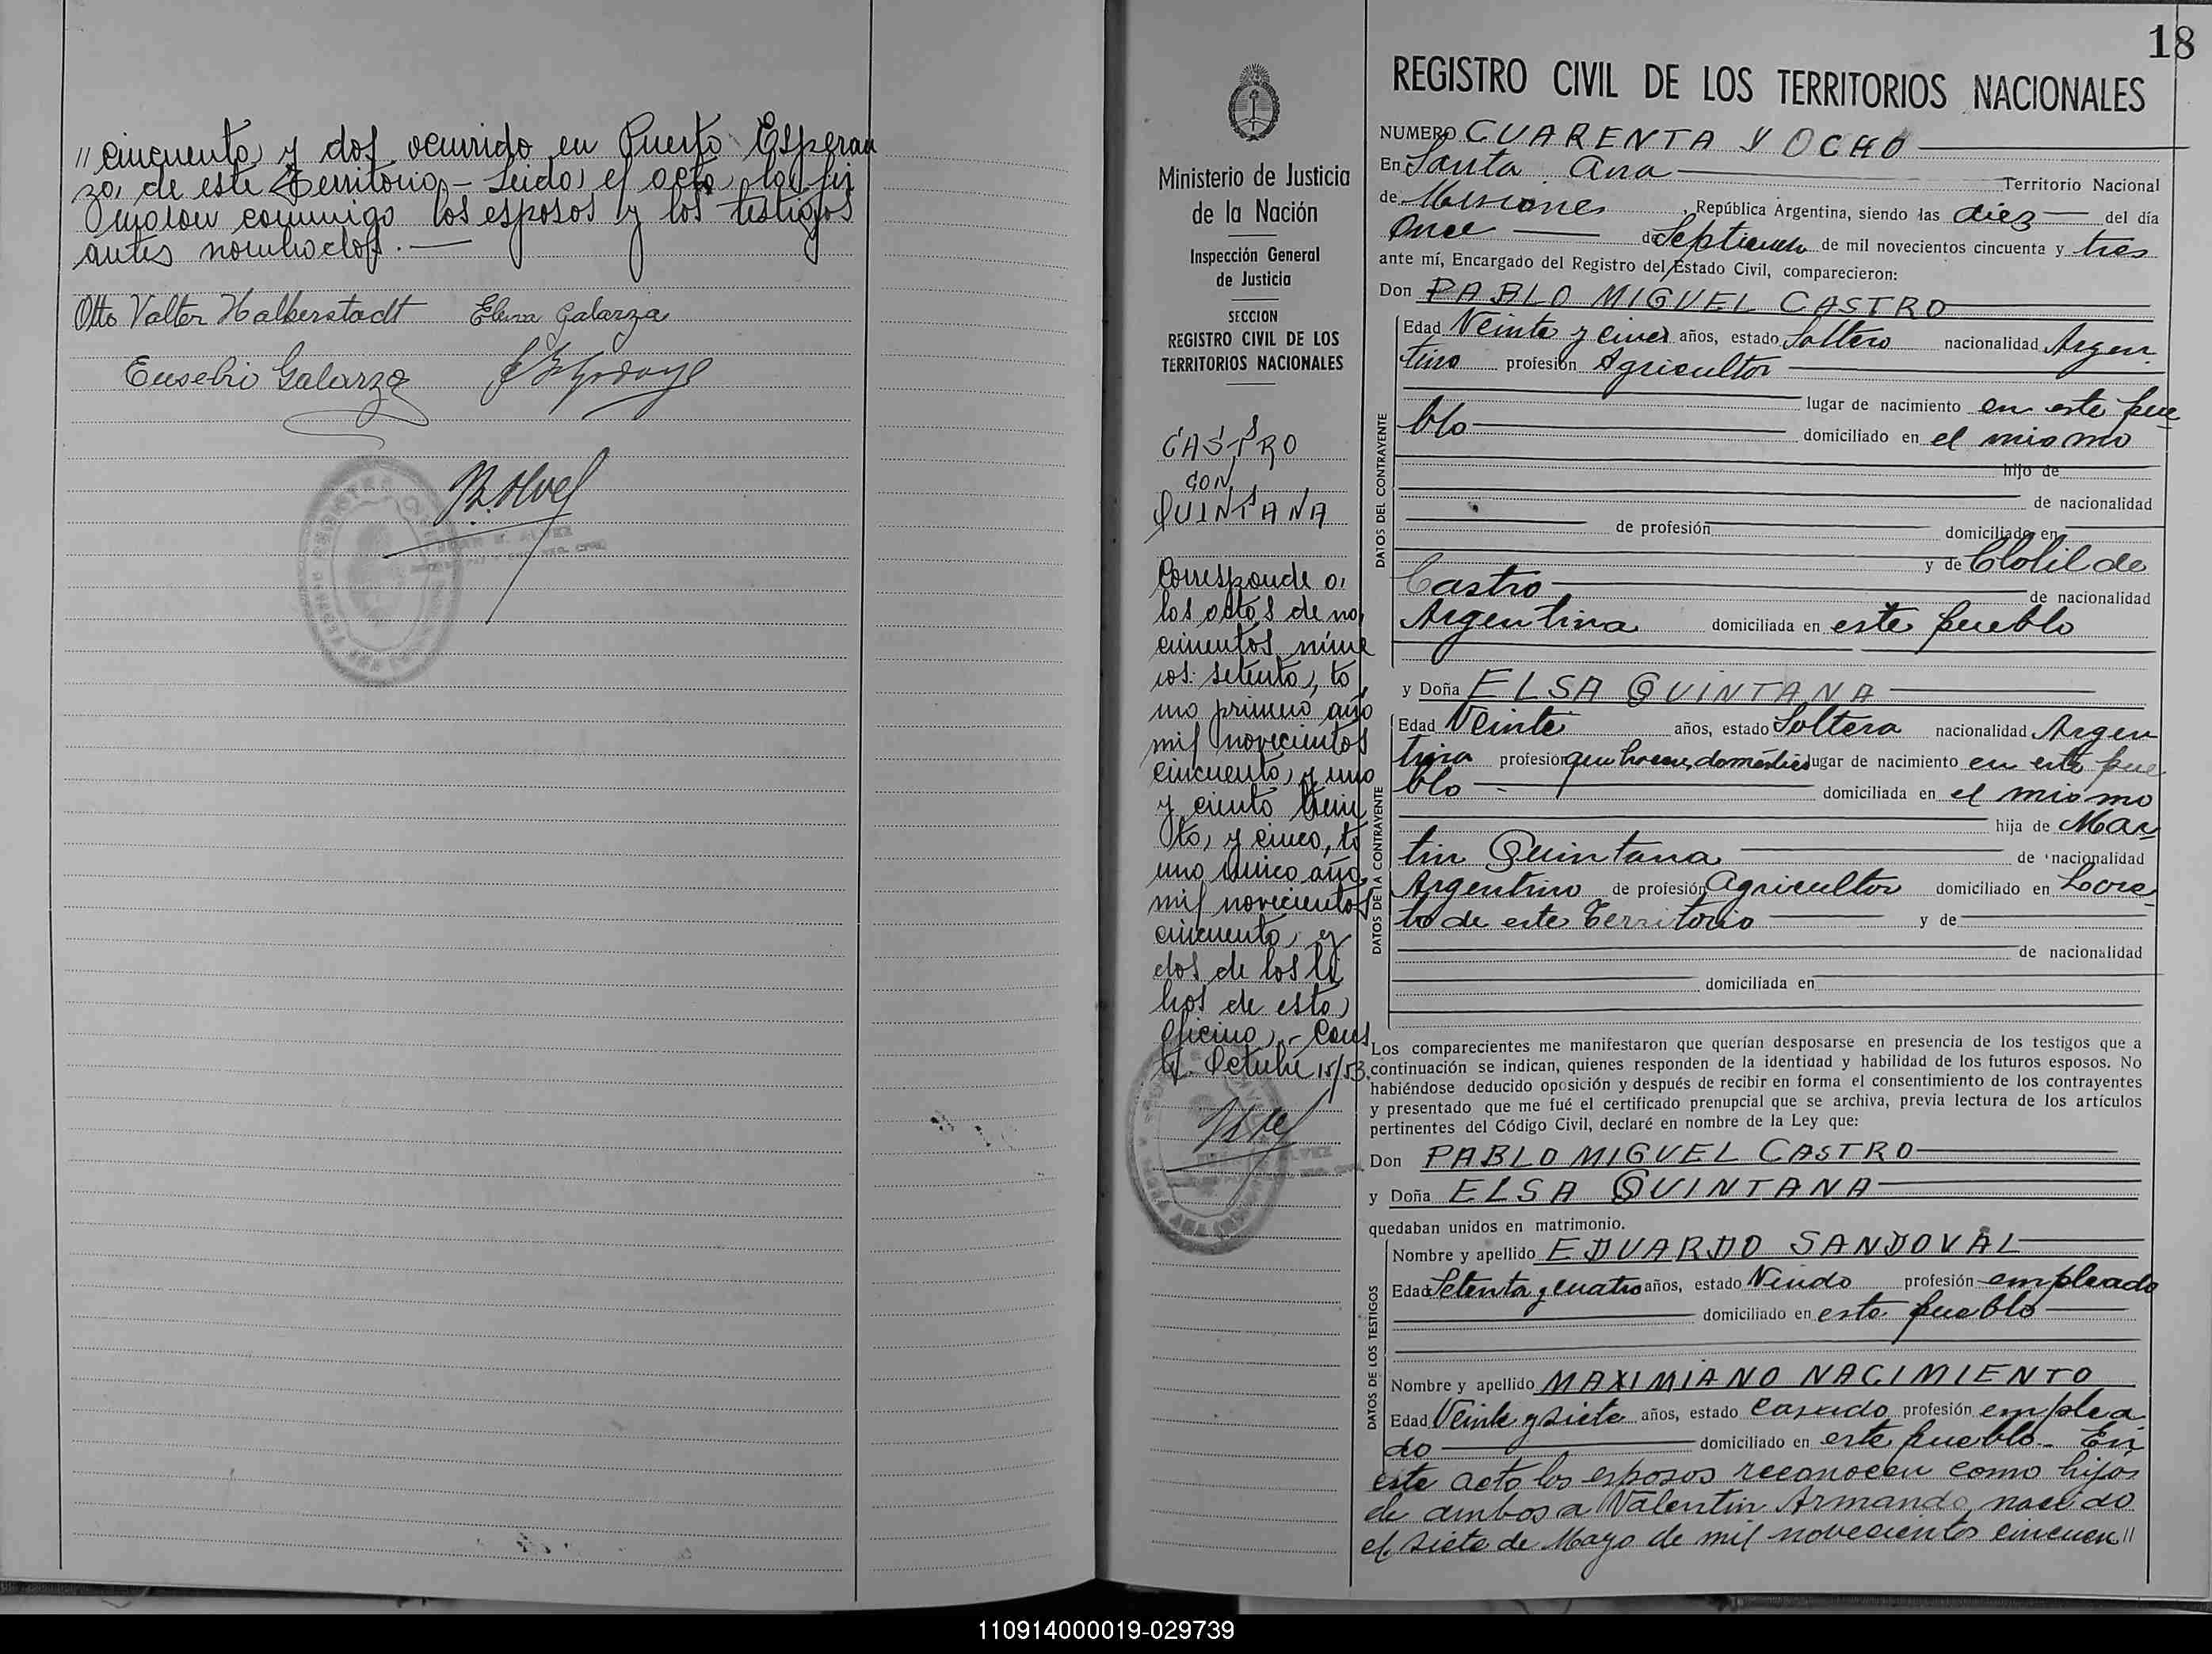 // cincuenta y dos ocurrido en Puerto Esperan
za, de este Territorio.- Leida el acta, la fir
maron conmigo los esposos y los testigos
antes nombrados.-
Otto Valter Halberstadt Elena Galarza
Eusebio Galarza
18
REGISTRO CIVIL DE LOS TERRITORIOS NACIONALES
Ministerio de Justicia
de la Nación
Inspección General
de Justicia
SECCION
REGISTRO CIVIL DE LOS
TERRITORIOS NACIONALES
CASTRO
CON
QUINTANA
Corresponde a
las actas de na
cimientos núme
ros: setenta, to
mo primero año
mil novecientos
cincuenta y uno
y ciento trein
ta y cinco, to
mo único año
mil novecientos
cincuenta y
dos de los li
bros de esta
Oficina.- Const
Octubre 15/53.
NUMERO CUARENTA Y OCHO
En Santa Ana Territorio Nacional
de Misiones, República Argentina, siendo las diez del día
Once de Septiembre de mil novecientos cincuenta y tres
ante mí, Encargado del Registro del Estado Civil, comparecieron:
Don PABLO MIGUEL CASTRO
DATOS DEL CONTRAYENTE
Edad Veinte y cinco años, estado Soltero nacionalidad Argen
tino profesión Agricultor
lugar de nacimiento en este pue
blo domiciliado en el mismo
hijo de
de nacionalidad
de profesión domiciliado en
y de Clotilde
Castro de nacionalidad
Argentina domiciliada en este pueblo
y Doña ELSA QUINTANA
DATOS DE LA CONTRAYENTE
Edad Veinte años, estado Soltera nacionalidad Argen
tina profesión domésticos lugar de nacimiento en este pue
blo domiciliada en el mismo
hija de Mar
tin Quintana de nacionalidad
Argentino de profesión Agricultor domiciliado en Lore
to de este Territorio y de
de nacionalidad
domiciliada en
Los comparecientes me manifestaron que querían desposarse en presencia de los testigos que a
continuación se indican, quienes responden de la identidad y habilidad de los futuros esposos. No
habiéndose deducido oposición y después de recibir en forma el consentimiento de los contrayentes
y presentado que me fué el certificado prenupcial que se archiva, previa lectura de los artículos
pertinentes del Código Civil, declaré en nombre de la Ley que:
Don PABLO MIGUEL CASTRO
y Doña ELSA QUINTANA
quedaban unidos en matrimonio.
DATOS DE LOS TESTIGOS
Nombre y apellido EDUARDO SANDOVAL
Edad Setenta y cuatro años, estado Viudo profesión empleado
domiciliado en este pueblo
Nombre y apellido MAXIMIANO NACIMIENTO
Edad Veinte y siete años, estado Casado profesión emplea
do domiciliado en este pueblo.- En
este acto los esposos reconocen como hijos
de ambos a Valentin Armando, nacido
el siete de Mayo de mil novecientos cincuen//
110914000019-029739